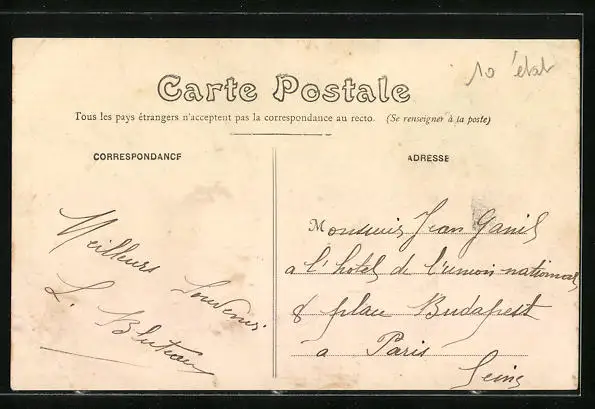 10 état
Carte Postale
Tous les pays étrangers n'acceptent pas la correspondance au recto. (Se renseigner à la poste)
CORRESPONDANCE
ADRESSE
Meilleurs
Souvenirs
L. Bluteau
Monsieur Jean
a l'hotel de l'union national
8 place Budapest
a Paris
Seine